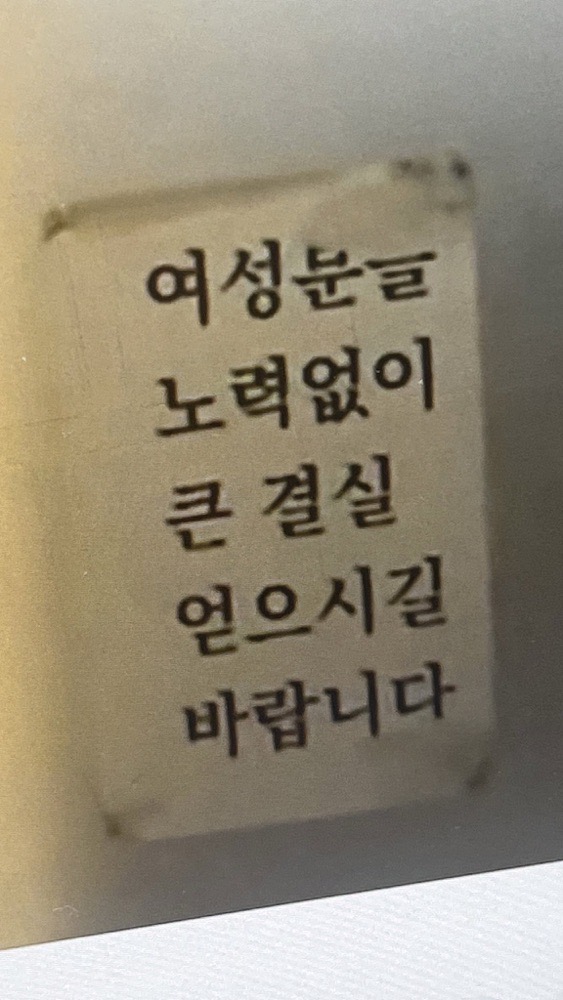 여성분들
노력없이
큰 결실
얻으시길
바랍니다